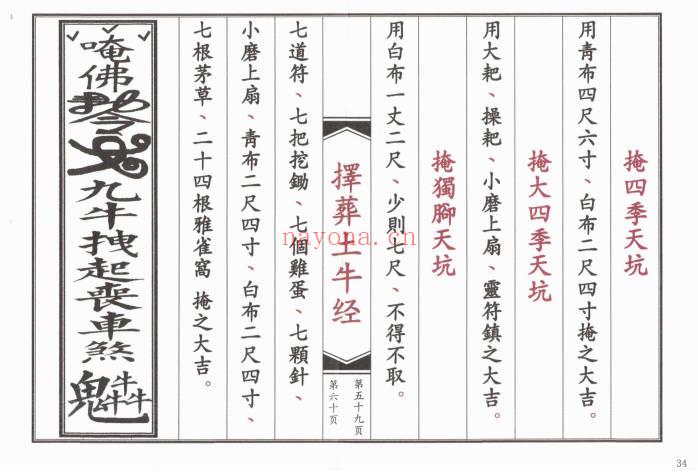 掩四季天坑
用青布四尺六寸、白布二尺四寸掩之大吉。
掩大四季天坑
用大耙、操耙、小磨上扇、靈符鎮之大吉。
掩獨腳天坑
用白布一丈二尺、少則七尺、不得不取。
擇葬土牛经
第五十九页
第六十页
七道符、七把挖鋤、七個雞蛋、七顆針、
小磨上扇、青布二尺四寸、白布二尺四寸、
七根茅草、二十四根雅雀窩 掩之大吉。
唵佛
令
九牛拽起喪車煞
鬼
牛牛牛
nayona.cn
34